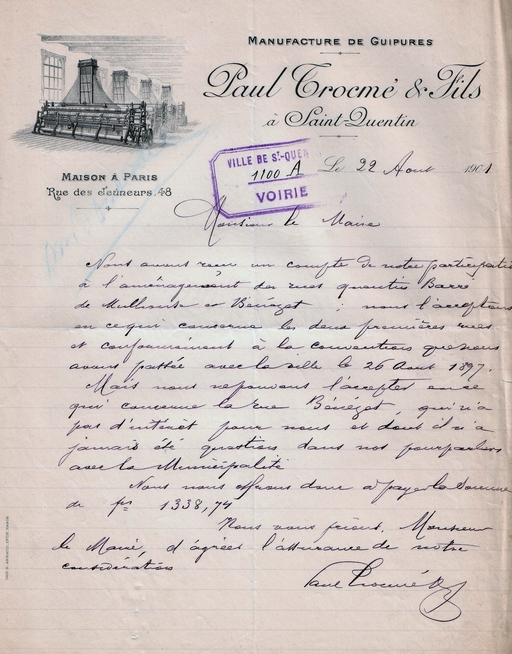 Manufacture de Guipures
Paul Trocmé & Fils
à Saint-Quentin
Maison à Paris
Rue des Jeûneurs. 48
VILLE DE St-QUEN
1100 A
VOIRIE
Le 22 Aout 1901
Monsieur le Maire
Nous avons reçu un compte de notre participatio
à l'aménagement des rues quentin Barré
de Mulhouse et Bénézet ; nous l'acceptons
en ce qui concerne les deux premières rues
et conformément à la convention que nous
avons passée avec la ville le 26 Aout 1897.
Mais nous ne pouvons l'accepter en ce
qui concerne la rue Bénézet, qui n'a
pas d'intérêt pour nous et dont il n'a
jamais été question dans nos pourparlers
avec la Municipalité
Nous nous offrons donc à payer la somme
de frs 1338,74
Nous vous prions, Monsieur
le Maire, d'agréer l'assurance de notre
considération
Paul Trocmé & fs